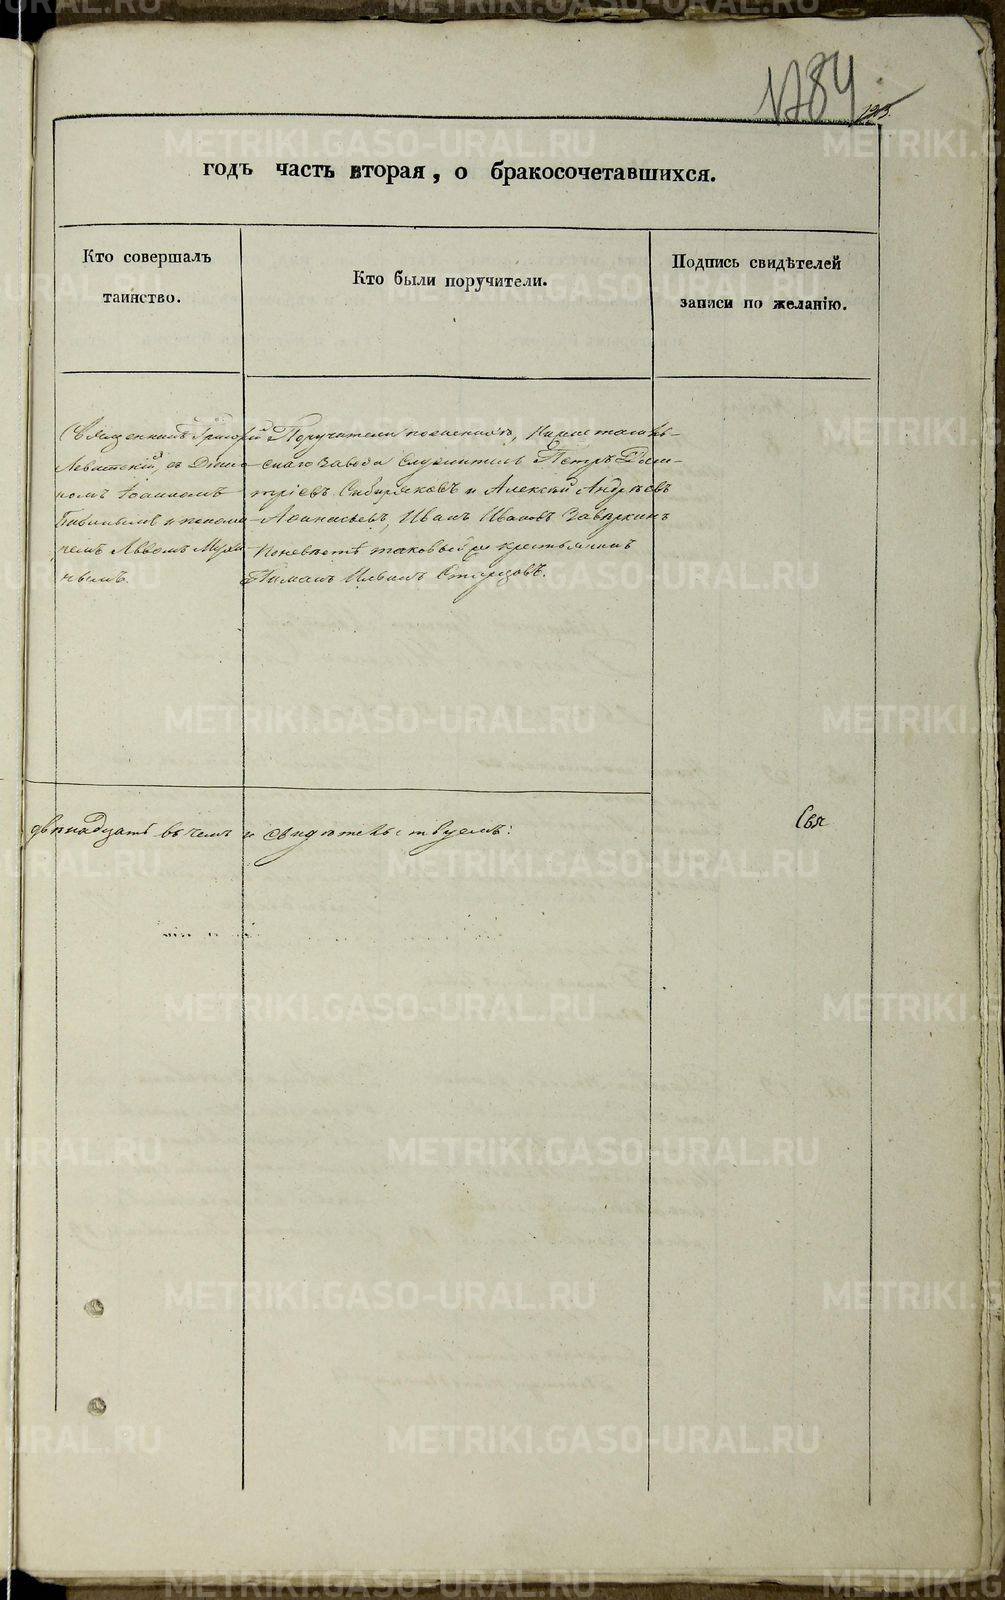 1784
195
годъ часть вторая, о бракосочетавшихся.
Кто совершалъ
таинство.
Кто были поручители.
Подпись свидѣтелей
записи по желанію.
Священникъ Григорій
Левитскій, съ Діако-
номъ Іоанномъ
и понома-
ремъ Львомъ
Поручители по женихѣ,
скаго завода служитель Петръ Дми-
тріевъ Сибиряковъ и Алексѣй Андрѣевъ
Афанасьевъ, Иванъ Ивановъ
По невѣстѣ таковый же крестьянинъ
Старцовъ.
двѣнадцать въ чемъ и свидѣтельствуемъ:
Свя
METRIKI.GASO-URAL.RU